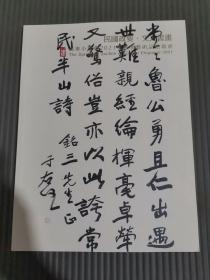 民國政要
2021
堂々魯公勇且仁出遇
世難親經綸揮毫卓犖
又驚俗豈亦以此誇常
民半山詩 銘三先生正
于右任